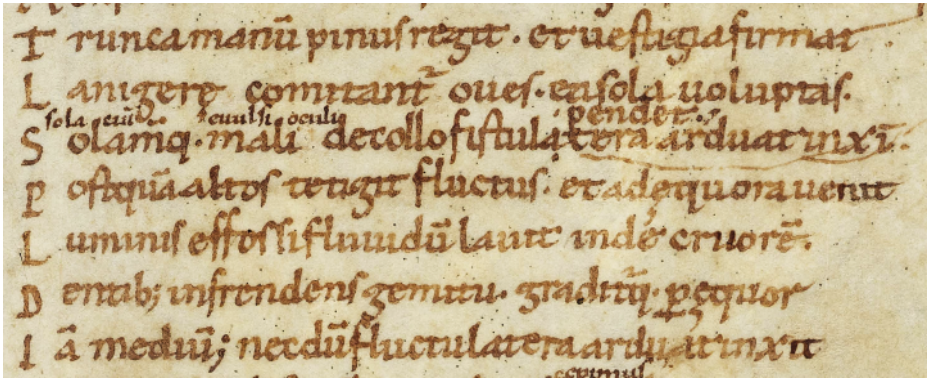 T runca manū pinus regit · et uestigia firmat
L anigerę comitant͛ oues · ea sola uoluptas.
sola cū euulsi oculi pendet
S olamq; mali de collo fistula latera ardua tinxī.
P ostquā altos tetigit fluctus · et ad ęquora uenit
L uminis effossi fluuidū lauit inde cruorē.
D entib; infrendens gemitu · graditq; p ęquor
I ā mediū; necdū fluctu latera ardua tinxit